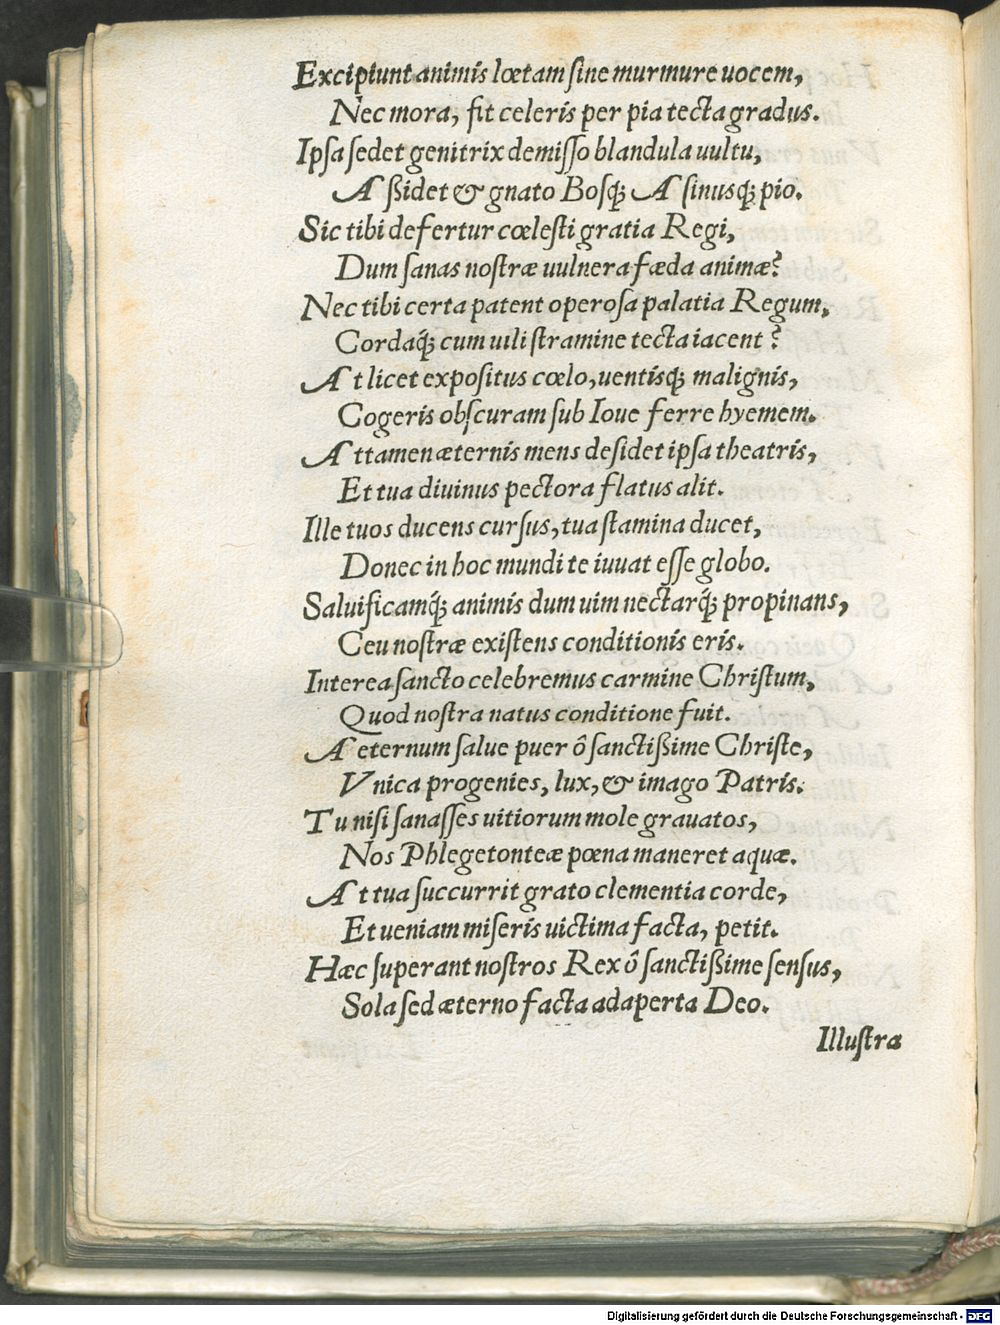 Excipiunt animis lœtam ſine murmure uocem,
Nec mora, fit celeris per pia tecta gradus.
Ipſa ſedet genitrix demiſſo blandula uultu,
Aßidet & gnato Boſq́; Aſinusq́; pio.
Sic tibi defertur cœleſti gratia Regi,
Dum ſanas noſtræ uulnera fæda animæ?
Nec tibi certa patent operoſa palatia Regum,
Cordaq́; cum uili ſtramine tecta iacent?
At licet expoſitus cœlo, uentisq́; malignis,
Cogeris obſcuram ſub Ioue ferre hyemem.
Attamen æternis mens deſidet ipſa theatris,
Et tua diuinus pectora flatus alit.
Ille tuos ducens curſus, tua ſtamina ducet,
Donec in hoc mundi te iuuat eſſe globo.
Saluificamq́; animis dum uim nectarq́; propinans,
Ceu noſtræ exiſtens conditionis eris.
Interea ſancto celebremus carmine Chriſtum,
Quod noſtra natus conditione fuit.
Aeternum ſalue puer ô ſanctißime Chriſte,
Vnica progenies, lux, & imago Patris.
Tu niſi ſanaſſes uitiorum mole grauatos,
Nos Phlegetonteæ pœna maneret aquæ.
At tua ſuccurrit grato clementia corde,
Et ueniam miſeris uictima facta, petit.
Hæc ſuperant noſtros Rex ô ſanctißime ſenſus,
Sola ſed æterno facta adaperta Deo.
Illuſtra
Digitalisierung gefördert durch die Deutsche Forschungsgemeinschaft - DFG